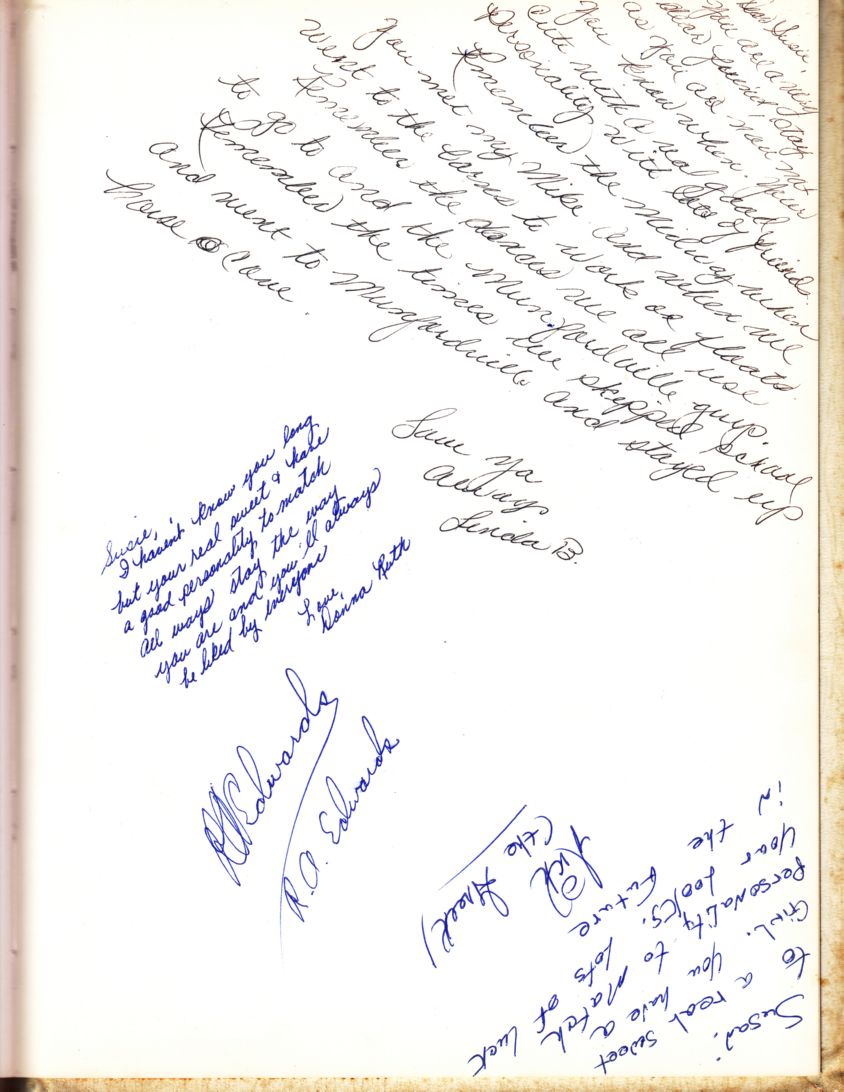 Dear Susie,
You are a very
dear friend, stay
as you are may not
You know when. Your
cute with a real good
personality with lots of friends.
Remember the Midway when
You met my Mike and when we
went to the barns to work on floats.
Remember the dances we all use
to go to and the Munfordville guys.
Remember the times we skipped school
and went to Munfordville and stayed up
horse Cave.
Love Ya
Always
Linda B.
Susie,
I haven't know you long
but your real sweet & have
a good personality to match
all ways stay the way
you are and you'll always
be liked by everyone
Love,
Donna Ruth
RA Edwards
R.A. Edwards
Susan:
to a real sweet
Girl. You have a
Personality to Match
Your Looks. Lots of Luck
in the Future
Nick
(the Greek)